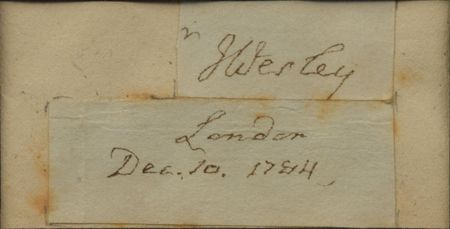 JWesley
London
Dec. 10. 1784